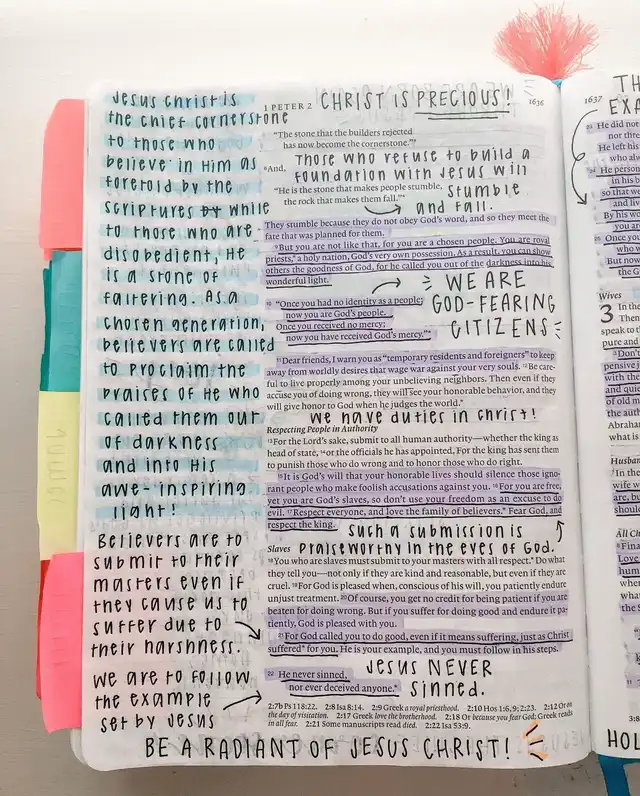 Jesus Christ is
the chief cornerstone
to those who
believe in Him as
foretold by the
scriptures by while
to those who are
disobedient, He
is a stone of
faltering. As a
chosen generation,
believers are called
to proclaim the
praises of He who
called them out
of darkness
and into His
awe-inspiring
light!
Believers are to
submit to their
masters even if
they cause us to
suffer due to
their harshness.
We are to follow
the example
set by Jesus
1 PETER 2
CHRIST IS PRECIOUS!
1636
“The stone that the builders rejected
has now become the cornerstone.”*
8And,
Those who refuse to build a
foundation with Jesus will
“He is the stone that makes people stumble,
the rock that makes them fall.”*
stumble
and fall.
They stumble because they do not obey God’s word, and so they meet the
fate that was planned for them.
9But you are not like that, for you are a chosen people. You are royal
priests,* a holy nation, God’s very own possession. As a result, you can show
others the goodness of God, for he called you out of the darkness into his
wonderful light.
WE ARE
GOD-FEARING
CITIZENS
10 “Once you had no identity as a people;
now you are God’s people.
Once you received no mercy;
now you have received God’s mercy.”*
11Dear friends, I warn you as “temporary residents and foreigners” to keep
away from worldly desires that wage war against your very souls. 12Be care-
ful to live properly among your unbelieving neighbors. Then even if they
accuse you of doing wrong, they will see your honorable behavior, and they
will give honor to God when he judges the world.*
We have duties in Christ!
Respecting People in Authority
13For the Lord’s sake, submit to all human authority—whether the king as
head of state, 14or the officials he has appointed. For the king has sent them
to punish those who do wrong and to honor those who do right.
15It is God’s will that your honorable lives should silence those igno-
rant people who make foolish accusations against you. 16For you are free,
yet you are God’s slaves, so don’t use your freedom as an excuse to do
evil. 17Respect everyone, and love the family of believers.* Fear God, and
respect the king.
Such a submission is
praiseworthy in the eyes of God.
Slaves
18You who are slaves must submit to your masters with all respect.* Do what
they tell you—not only if they are kind and reasonable, but even if they are
cruel. 19For God is pleased when, conscious of his will, you patiently endure
unjust treatment. 20Of course, you get no credit for being patient if you are
beaten for doing wrong. But if you suffer for doing good and endure it pa-
tiently, God is pleased with you.
21For God called you to do good, even if it means suffering, just as Christ
suffered* for you. He is your example, and you must follow in his steps.
22 He never sinned,
nor ever deceived anyone.*
Jesus NEVER
sinned.
2:7b Ps 118:22. 2:8 Isa 8:14. 2:9 Greek a royal priesthood. 2:10 Hos 1:6, 9; 2:23. 2:12 Or on
the day of visitation. 2:17 Greek love the brotherhood. 2:18 Or because you fear God; Greek reads
in all fear. 2:21 Some manuscripts read died. 2:22 Isa 53:9.
BE A RADIANT OF JESUS CHRIST!
1637
23 He did not
24 He person
in his b
so that we
and live
By his w
you are
25 Once you
who w
But now
the G
Wives
3 In the
Then
spea
pure and
3Don't
with the
and quie
of old m
the aut
Abraha
what is
In the
wife w
are, b
should
All Chri
Fina
Love
hum
when
what
the
3:8